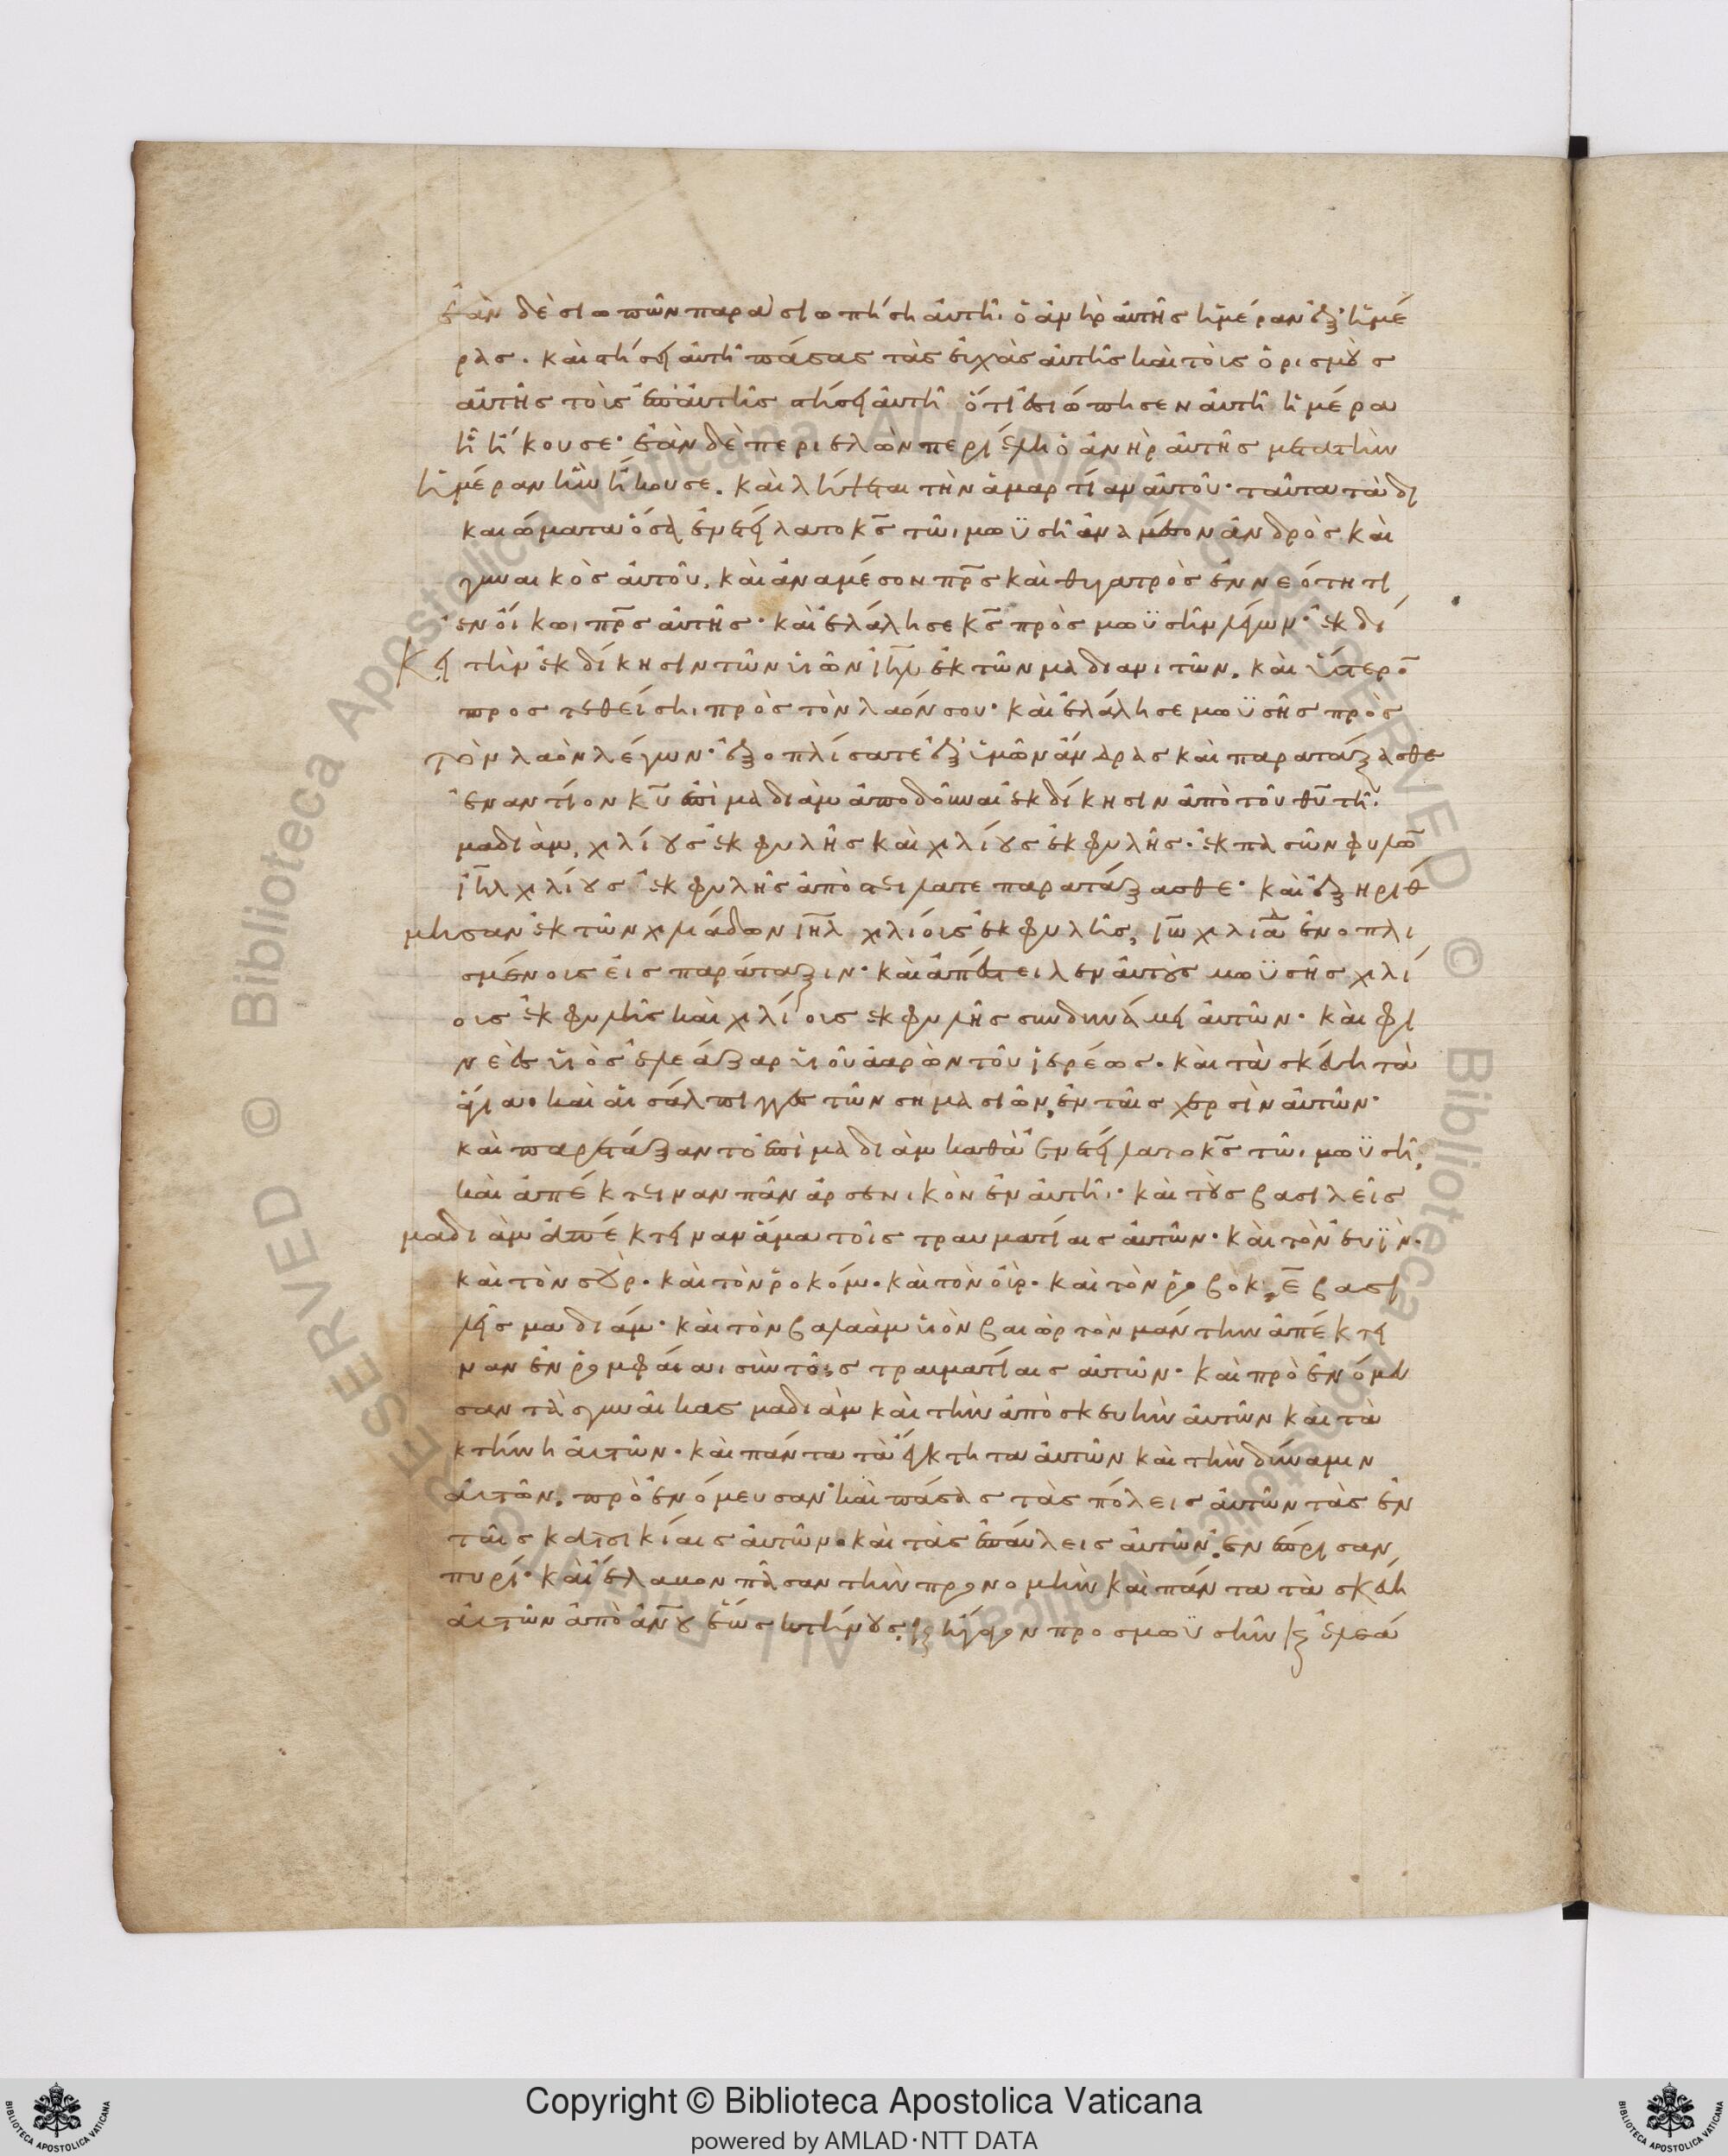 ἐὰν δὲ σιωπῶν παρασιωπήση ἀυτῆ· ὁ ἀνὴρ ἀυτῆς ἡμέραν ἐξ ἡμέ
ρας. καὶ στήσει ἀυτῆ πάσας τὰς ἐυχὰς ἀυτῆς καὶ τοὶς ὁρισμοὺς
ἀυτῆς τοὶς ἐπ' ἀυτῆς στήσει ἀυτῆ ὅτι ἐσιώπησεν ἀυτῆ ἡμέρα
ἧ ἤκουσε· ἐὰν δὲ περιελὼν περιέλη ὁ ἀνὴρ ἀυτῆς μετὰ τὴν
ἡμέραν ἣν ἤκουσε. καὶ λήψεται τὴν ἁμαρτίαν ἀυτοῦ· ταῦτα τὰ δι
καιώματα ὅσα ἐνετείλατο κ̅ς̅ τῶι μωϋσῆ ἀναμέσον ἀνδρὸς καὶ
γυναικὸς ἀυτοῦ, καὶ ἀναμέσον π̅ρ̅ς̅ καὶ θυγατρὸς ἐν νεότητι
ἐν ὄικωι π̅ρ̅ς̅ ἀυτῆς· καὶ ἐλάλησε κ̅ς̅ πρὸς μωϋσῆν λέγων· ἐκδί
κει τὴν ἐκδίκησιν τῶν ὑιῶν ι̅η̅λ̅ ἐκ τῶν μαδιανιτῶν. καὶ ὕστερο̅
προστεθείση· πρὸς τὸν λαόν σου· καὶ ἐλάλησε μωϋσῆς πρὸς
τὸν λαὸν λέγων· ἐξοπλίσατε ἐξ ὑμῶν ἄνδρας καὶ παρατάξασθε
ἐναντίον κ̅υ̅ ἐπὶ μαδιὰμ ἀποδοῦναι ἐκδίκησιν ἀπὸ τοῦ θ̅υ̅ τῆ·
μαδιὰμ, χιλίους ἐκ φυλῆς καὶ χιλίους ἐκ φυλῆς· ἐκ πασῶν φυλῶ̅
ι̅η̅λ̅ χιλίους ἐκ φυλῆς ἀποστείλατε παρατάξασθε· καὶ ἐξηρίθ
μησαν ἐκ τῶν χιλιάδων ι̅η̅λ̅ χιλίοις ἐκ φυλῆς, ι̅β̅ χιλιάδ ἐνοπλι
σμένοις εἰς παράταξιν· καὶ ἀπέστειλεν ἀυτοὺς μωϋσῆς χιλί
οις ἐκ φυλῆς καὶ χιλίοις ἐκ φυλῆς συνδυνάμει ἀυτῶν· καὶ φι
νεὲς ὑιὸς ἐλεάζαρ ὑιοῦ ἀαρὼν τοῦ ἱερέως. καὶ τὰ σκεύη τὰ
ἅγια· καὶ ἁι σάλπιγγες τῶν σημασιῶν, ἐν ταῖς χερσὶν ἀυτῶν·
καὶ παρετάξαντο ἐπὶ μαδιὰμ καθὰ ἐνετείλατο κ̅ς̅ τῶι μωϋσῆ,
καὶ ἀπέκτειναν πᾶν ἀρσενικὸν ἐν ἀυτῆι· καὶ τοὺς βασιλεῖς
μαδιὰμ ἀπέκτειναν ἅμα τοῖς τραυματίαις ἀυτῶν· καὶ τὸν ἐυϊν·
καὶ τὸν σοὺρ. καὶ τὸν ῥοκόμ. καὶ τὸν οὒρ. καὶ τὸν ῥοβὸκ, ε̅ βασι
λεῖς μαδιάμ· καὶ τὸν βαλαὰμ ὑιὸν βαιὼρ τὸν μάντην ἀπέκτει
ναν ἐν ῥομφάιαι σὺν τοῖς τραυματίαις ἀυτῶν· καὶ προενόμευ
σαν τὰς γυναῖκας μαδιὰμ καὶ τὴν ἀποσκευὴν ἀυτῶν καὶ τὰ
κτήνη ἀυτῶν· καὶ πάντα τὰ ἔγκτητα ἀυτῶν καὶ τὴν δύναμιν
ἀυτῶν. προενόμευσαν· καὶ πάσας τὰς πόλεις ἀυτῶν τὰς ἐν
ταῖς κατοικίαις ἀυτῶν· καὶ τὰς ἐπαύλεις ἀυτῶν, ἐνέπρησαν
πυρί· καὶ ἔλαβον πᾶσαν τὴν προνομὴν καὶ πάντα τὰ σκεύη
ἀυτῶν ἀπὸ ἀν̅ου ἕως κτήνους, καὶ ἤγαγον προς μωϋσῆν καὶ ἐλεά
Copyright © Biblioteca Apostolica Vaticana
powered by AMLAD·NTT DATA